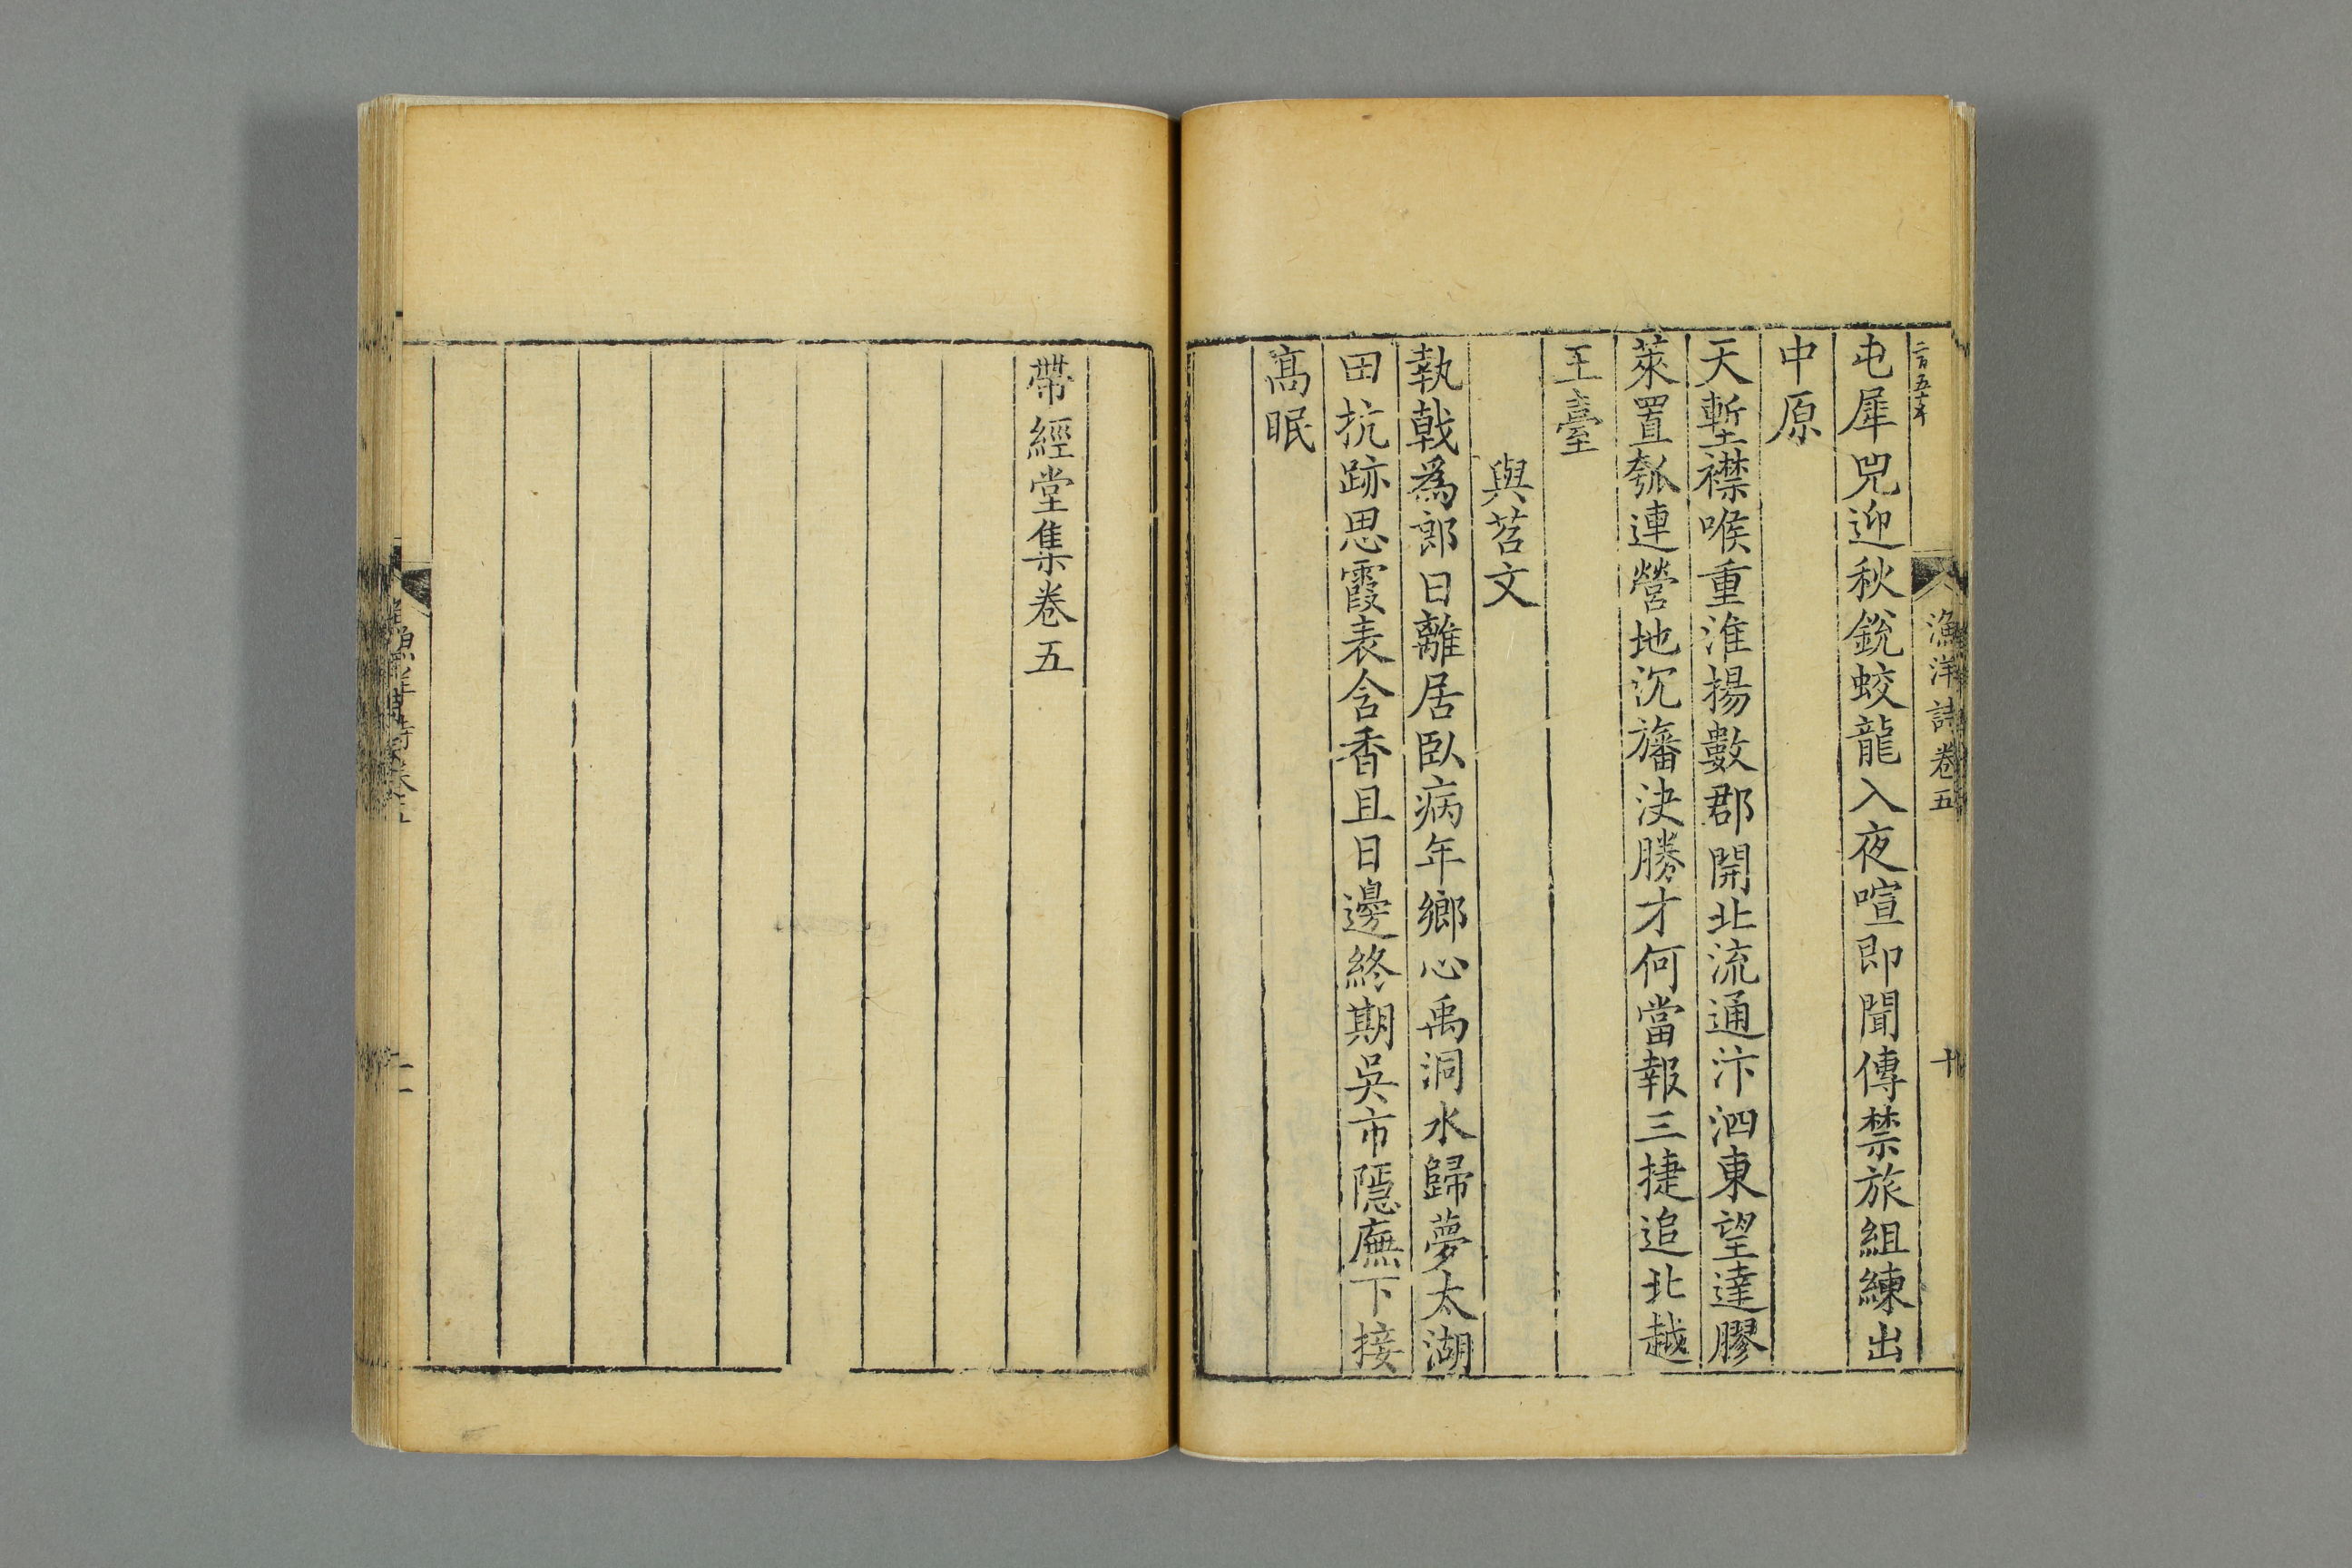 漁洋詩卷五
十
屯犀兕迎秋銳蛟龍入夜喧即聞傳禁旅組練出
中原
天塹襟喉重淮揚數郡開北流通汴泗東望達膠
萊置瓠連營地沉旛決勝才何當報三捷追北越
王臺
與苕文
執戟爲郎日離居臥病年鄉心禹洞水歸夢太湖
田抗跡思霞表含香且日邊終期吳市隱廡下接
高眠
帶經堂集卷五